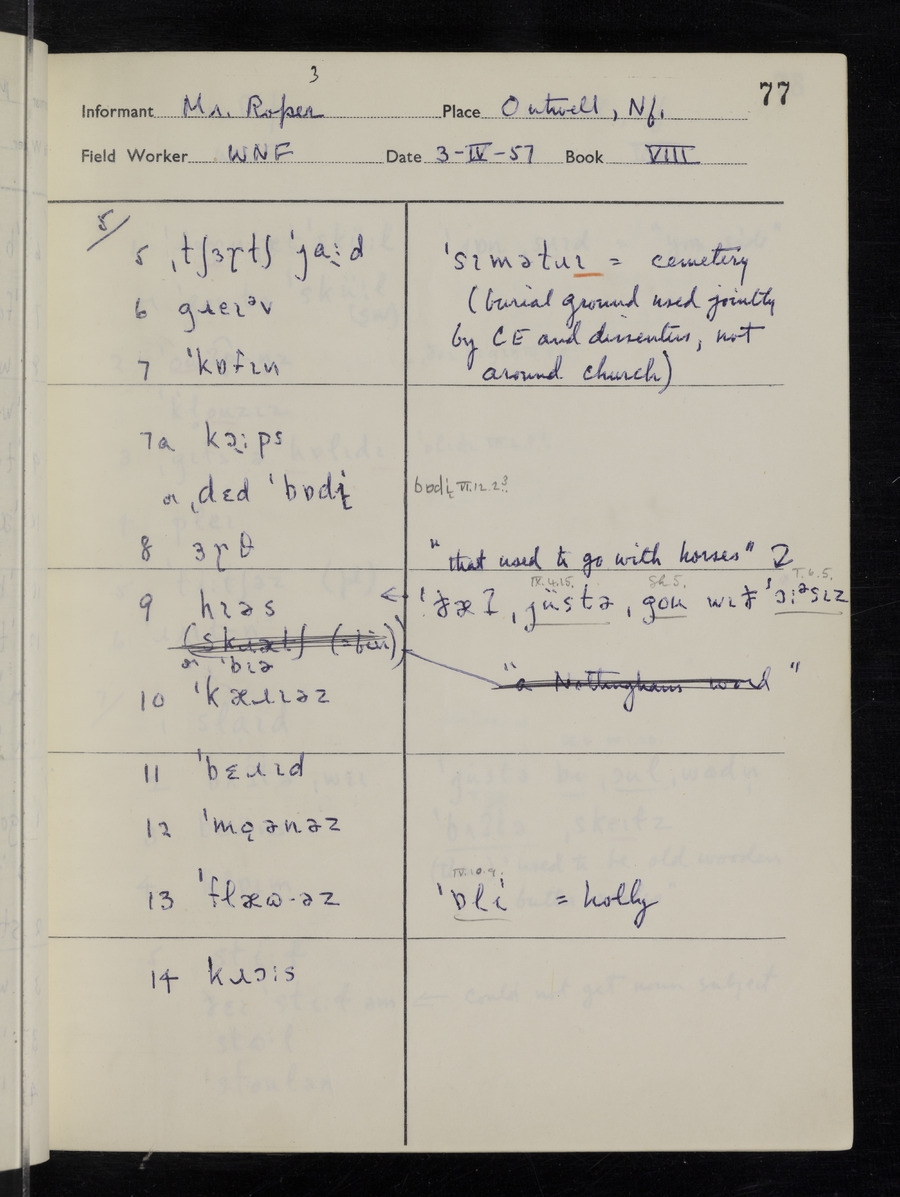 3
77
Informant Mr. Roper Place Outwell, Nf.
Field Worker WNF Date 3-IV-57 Book VIII
5/
5 ˌtʃɜɽtʃ ˈjaːd
6 gɹeɪᵊv
7 ˈkɒfɪn
ˈsɪmətɹɪ = cemetery
(burial ground used jointly
by CE and dissenters, not
around church)
7a kɔːps
or ˌdɛd ˈbɒdi̧
bɒdi̧ VI.12.2?
8 ɜɽθ
"that used to go with horses"
9 hɪəs
IV.4.15. Sh.5. T.6.5.
ˌjüstə ˌgou wɪð
or ˈbɪə
"a Nottingham word"
10 ˈkæɹɪəz
11 ˈbɛɹɪd
12 ˈmɔənəz
13 ˈflæω·əz
IV.10.9.
ˈɒli = holly
14 kɹɔis